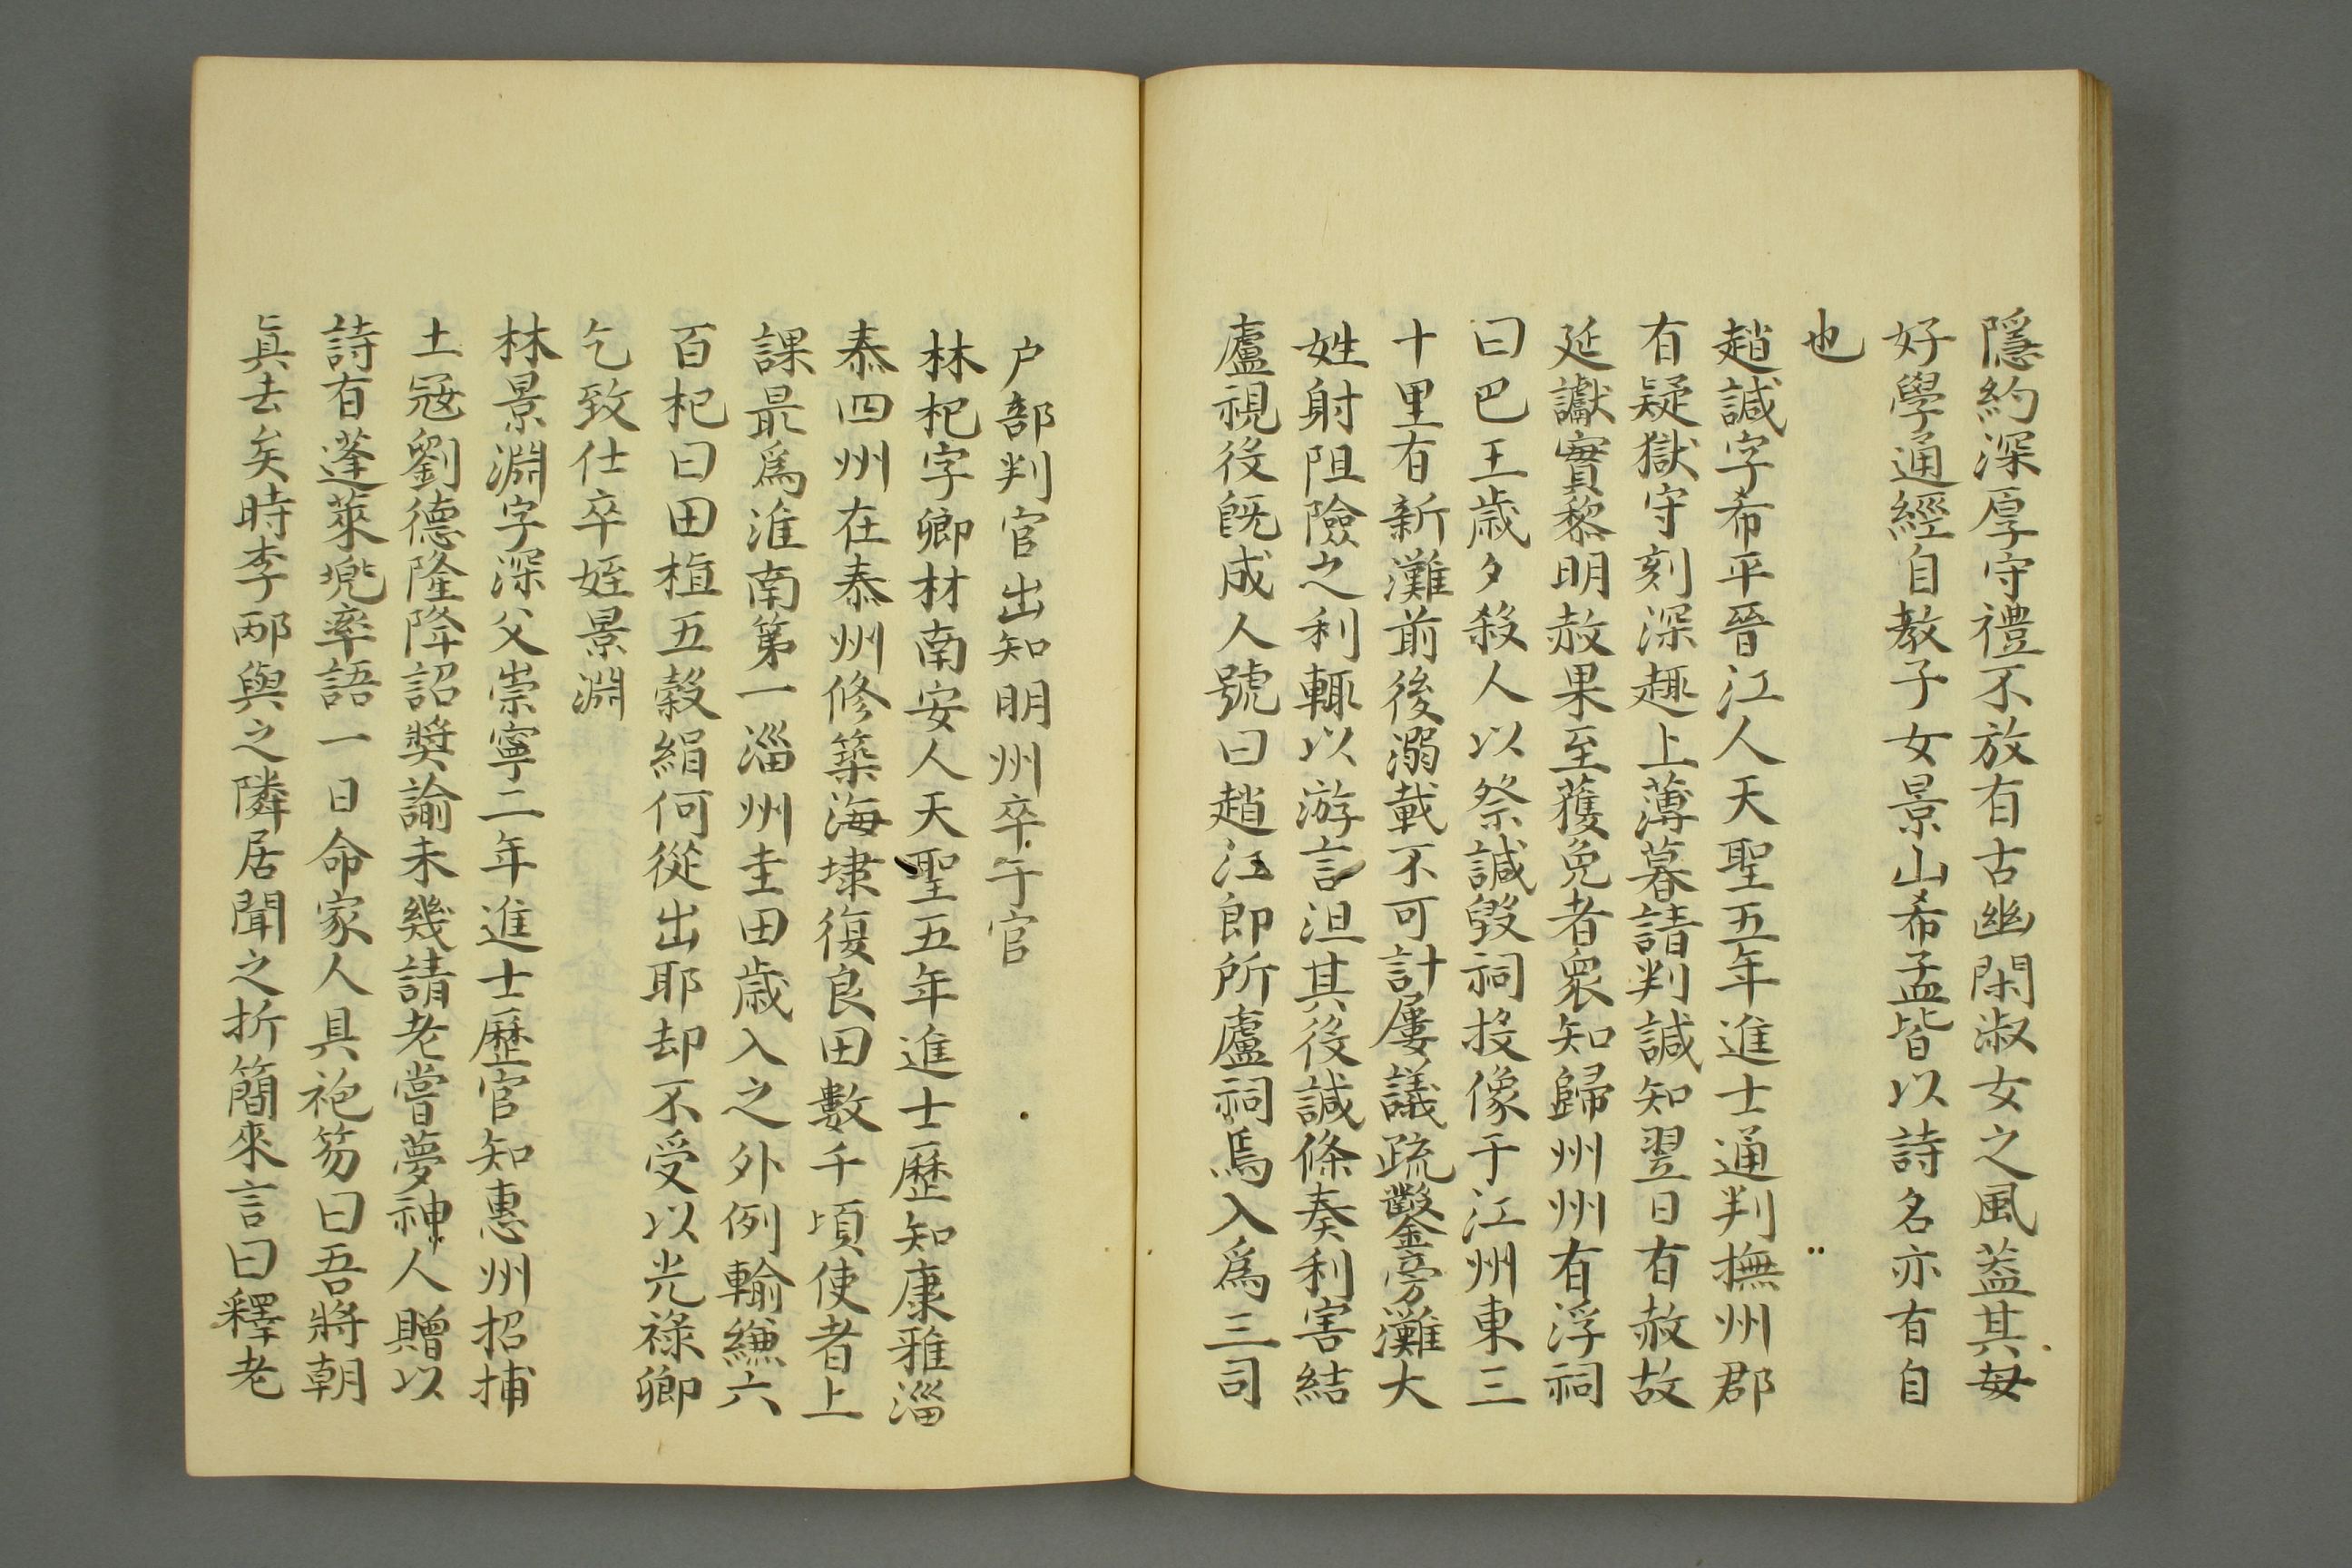 隱約深厚守禮不放有古幽閑淑女之風葢其母
好學通經自教子女景山希孟皆以詩名亦有自
也
趙諴字希平晉江人天聖五年進士通判撫州郡
有疑獄守刻深趣上薄暮請判諴知翌日有赦故
延讞實黎明赦果至獲免者衆知歸州州有浮祠
曰巴王歳夕殺人以祭諴毀祠投像于江州東三
十里有新灘前後溺載不可計屢議疏鑿旁灘大
姓射阻險之利輒以游言沮其役諴條奏利害結
廬視役既成人號曰趙江即所廬祠焉入爲三司
户部判官出知明州卒于官
林杞字卿材南安人天聖五年進士歷知康雅淄
泰四州在泰州修築海埭復良田數千頃使者上
課最爲淮南第一淄州圭田歳入之外例輸縑六
百杞曰田植五穀絹何從出耶却不受以光禄卿
乞致仕卒姪景淵
林景淵字深父崇寧二年進士歷官知惠州招捕
土冦劉德隆降詔奬諭未幾請老嘗夢神人贈以
詩有蓬萊兠率語一日命家人具袍笏曰吾將朝
眞去矣時李邴與之隣居聞之折簡來言曰釋老